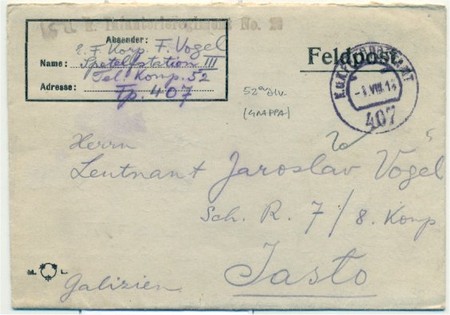 k. u. k. Infanterieregiment No. 29
Absender:
E. F. Korp. F. Vogel
Name: Spetellstation III
Tel. Komp. 52
Adresse: Fp. 407
Feldpost.
K.u.K. FELDPOSTAMT
-1.VIII.18
407
52er DIV.
(GRAPPA)
Herrn
Leutnant Jaroslav Vogel
Sch. R. 7/8. Komp
Jasto
M. L.
Galizien